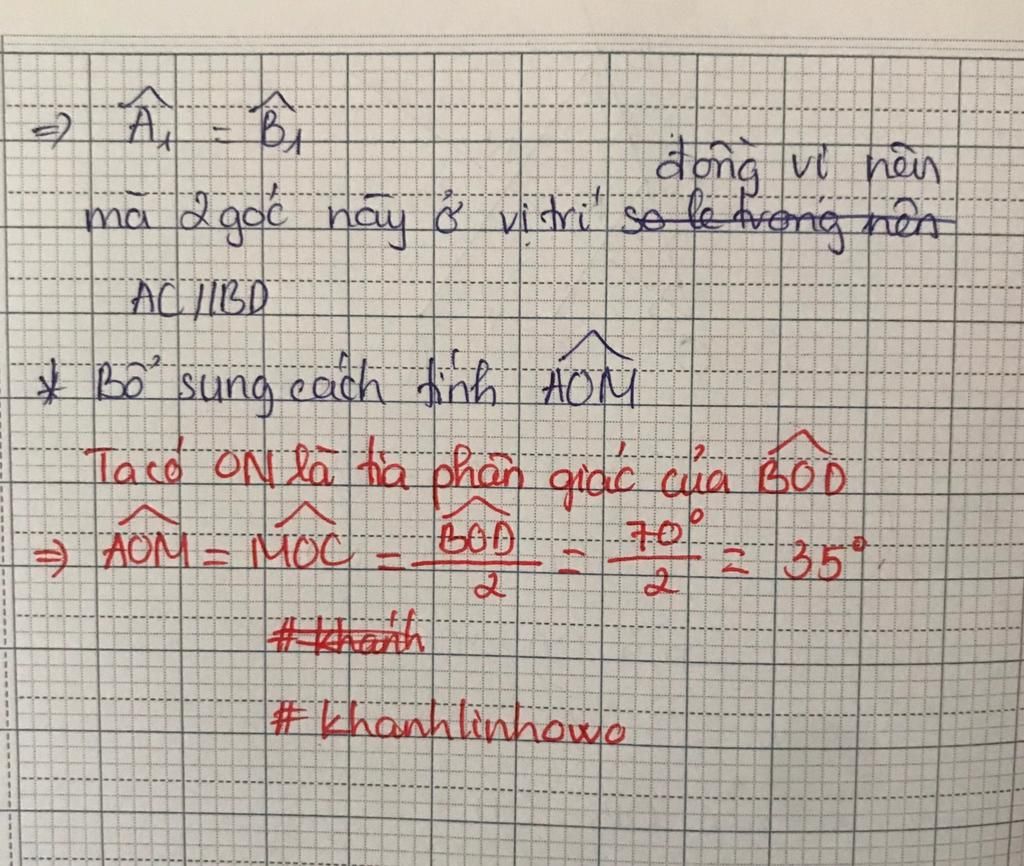 ⇒ Â₁ = B̂₁
đồng vị nên
mà 2 góc này ở vị trí so le trong nên
AC//BD
* Bổ sung cách tính AOM
Ta có ON là tia phân giác của BOD
⇒ AOM = MOC = BOD/2 = 70°/2 = 35°
# khánh
# khanhlinhowo